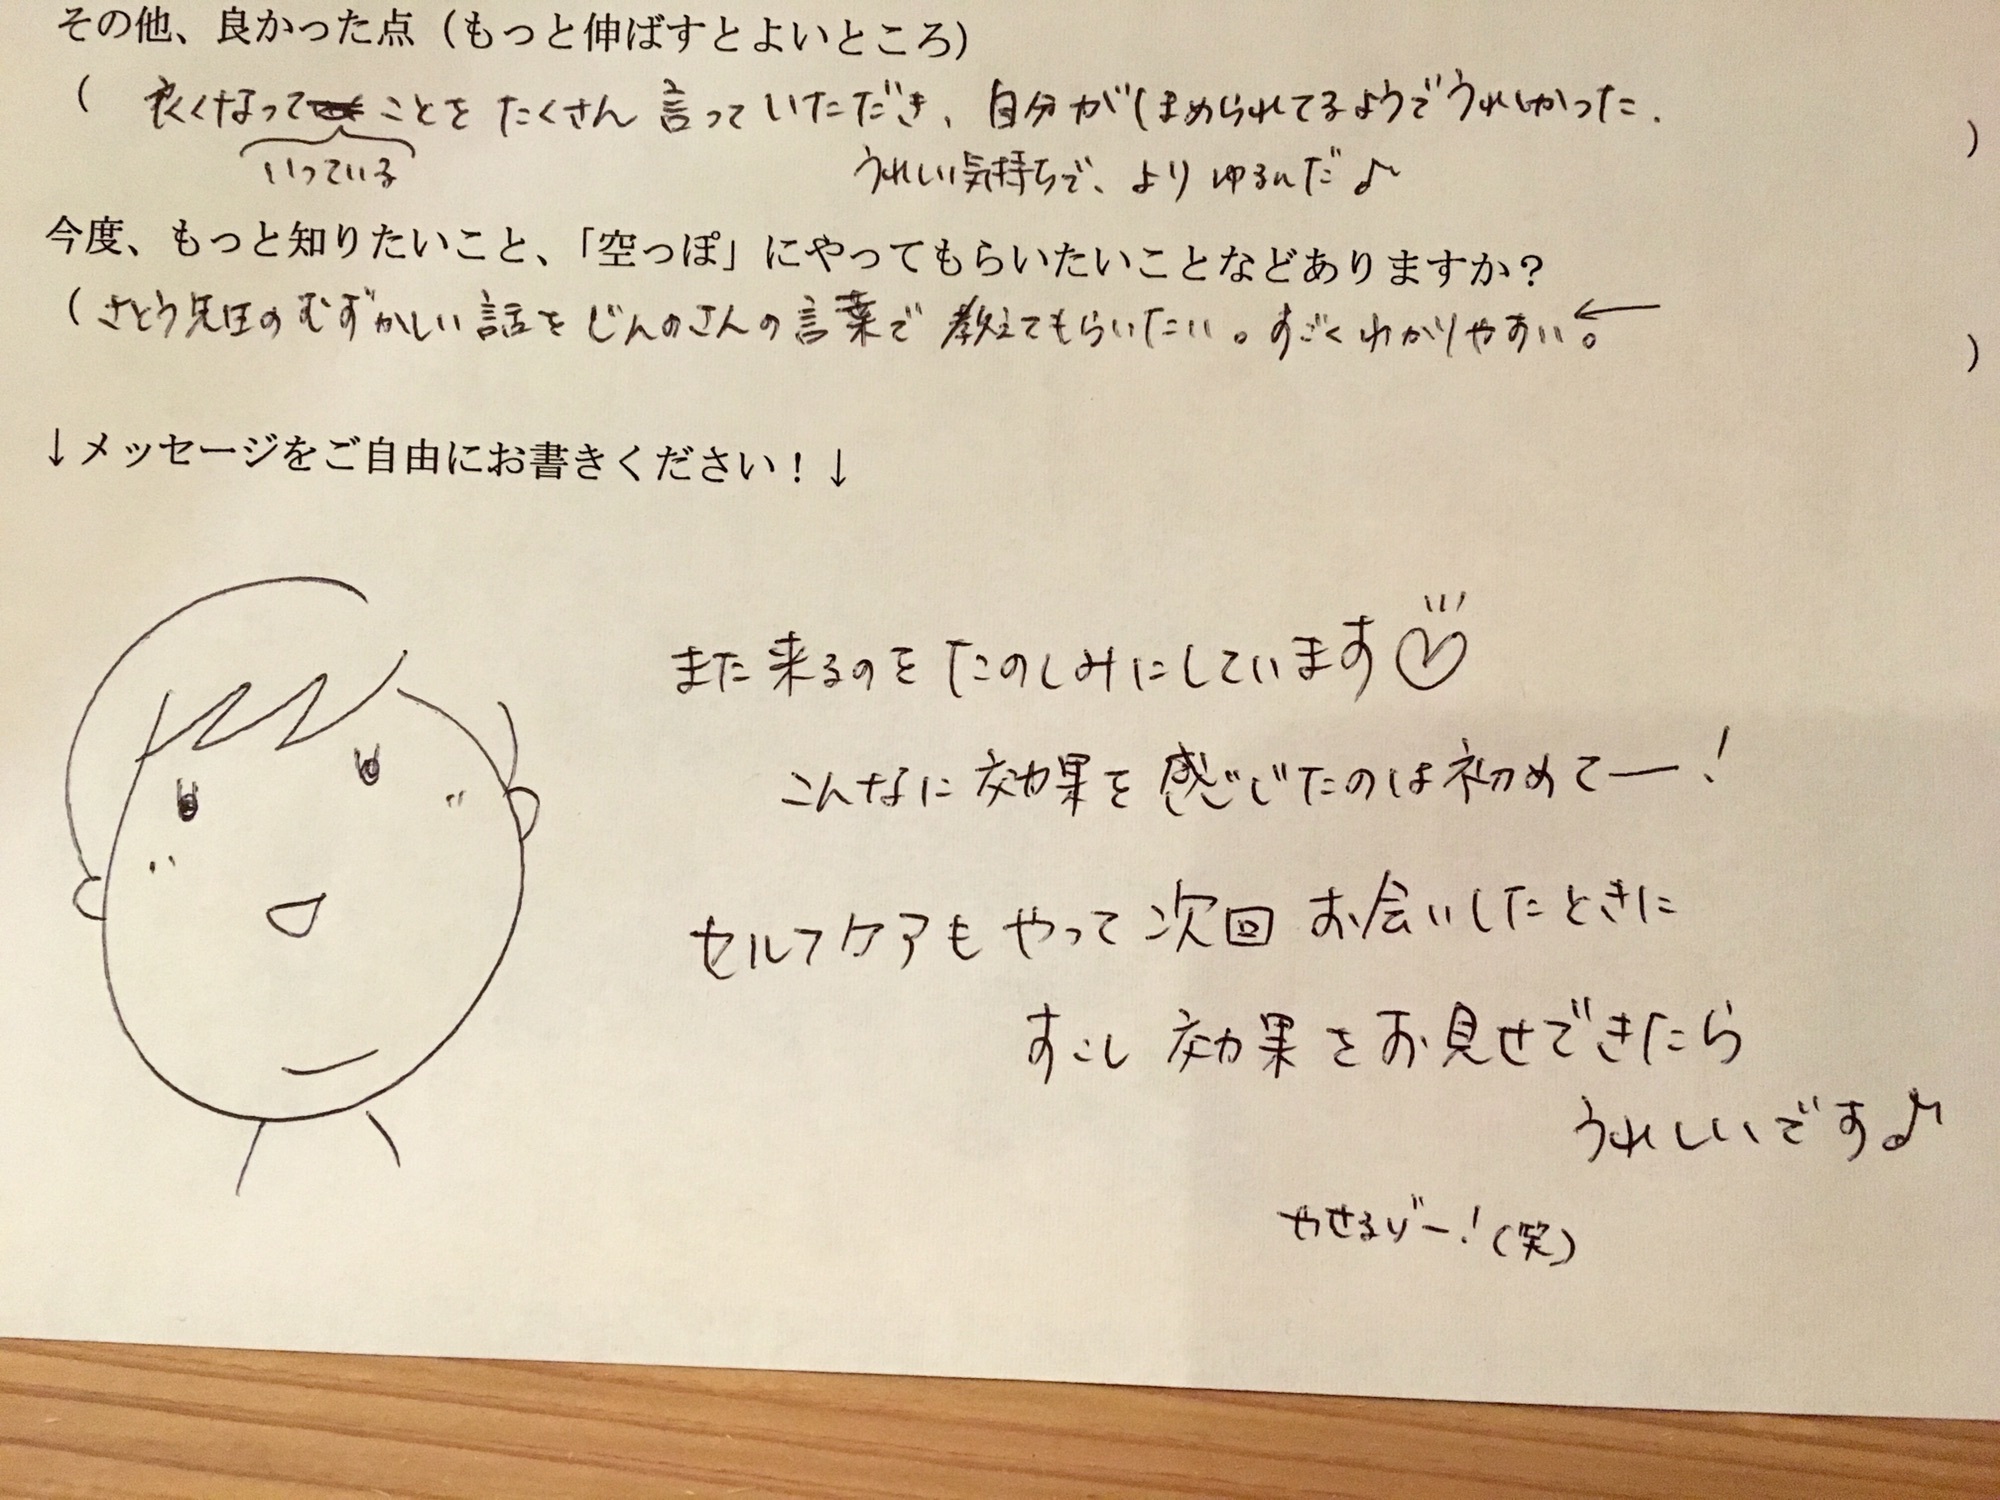 その他、良かった点（もっと伸ばすとよいところ）
（ 良くなって ことを たくさん 言って いただき、自分が ほめられてるようでうれしかった. ）
いっている
うれしい気持ちで、より ゆるんだ♪
今度、もっと知りたいこと、「空っぽ」にやってもらいたいことなどありますか？
（ さとう先生の むずかしい 話を じんのさんの 言葉で 教えてもらいたい。すごく わかりやすい。← ）
↓メッセージをご自由にお書きください！↓
また 来るのを たのしみにしています♡
こんなに 効果を 感じたのは 初めてー！
セルフケアも やって 次回 お会いしたときに
すこし 効果を お見せできたら
うれしいです♪
やせるぞー！（笑）